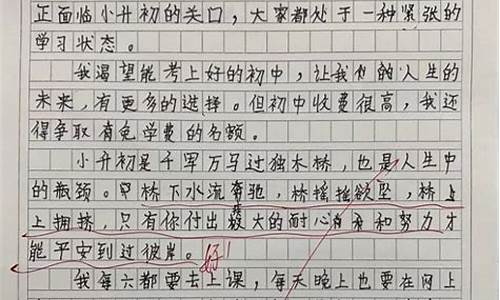 正面临小升初的关口，大家都处于一种紧张的
学习状态。
我渴望能考上好的初中，让我们的人生的
未来，有更多的选择。但初中收费很高，我还
得争取有免学费的名额。
小升初是千军万马过独木桥，也是人生中
的瓶颈。桥下水流奔驰，桥摇摇欲坠，桥上
上拥挤，只有你付出极大的耐心和努力才
能平安到过彼岸。好！
我每六都要去上课，每天晚上也要在网上